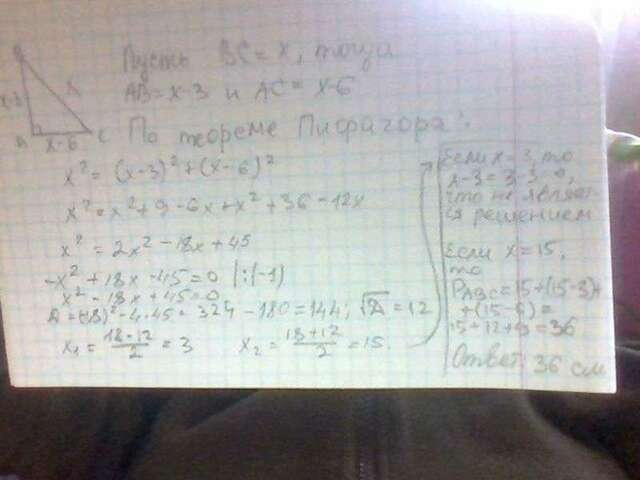 Пусть BC = x, тогда
AB = x-3 и AC = x-6
x
x-3
x-6
C
По теореме Пифагора:
x² = (x-3)² + (x-6)²
x² = x² + 9 - 6x + x² + 36 - 12x
x² = 2x² - 18x + 45
-x² + 18x - 45 = 0 |:(-1)
x² - 18x + 45 = 0
D = (-18)² - 4·45 = 324 - 180 = 144; √D = 12
x₁ = (18-12)/2 = 3 x₂ = (18+12)/2 = 15.
Если x = 3, то
x-3 = 3-3 = 0,
что не являет-
ся решением
Если x = 15,
то
P ABC = 15 + (15-3) +
+ (15-6) =
15 + 12 + 9 = 36
Ответ: 36 см